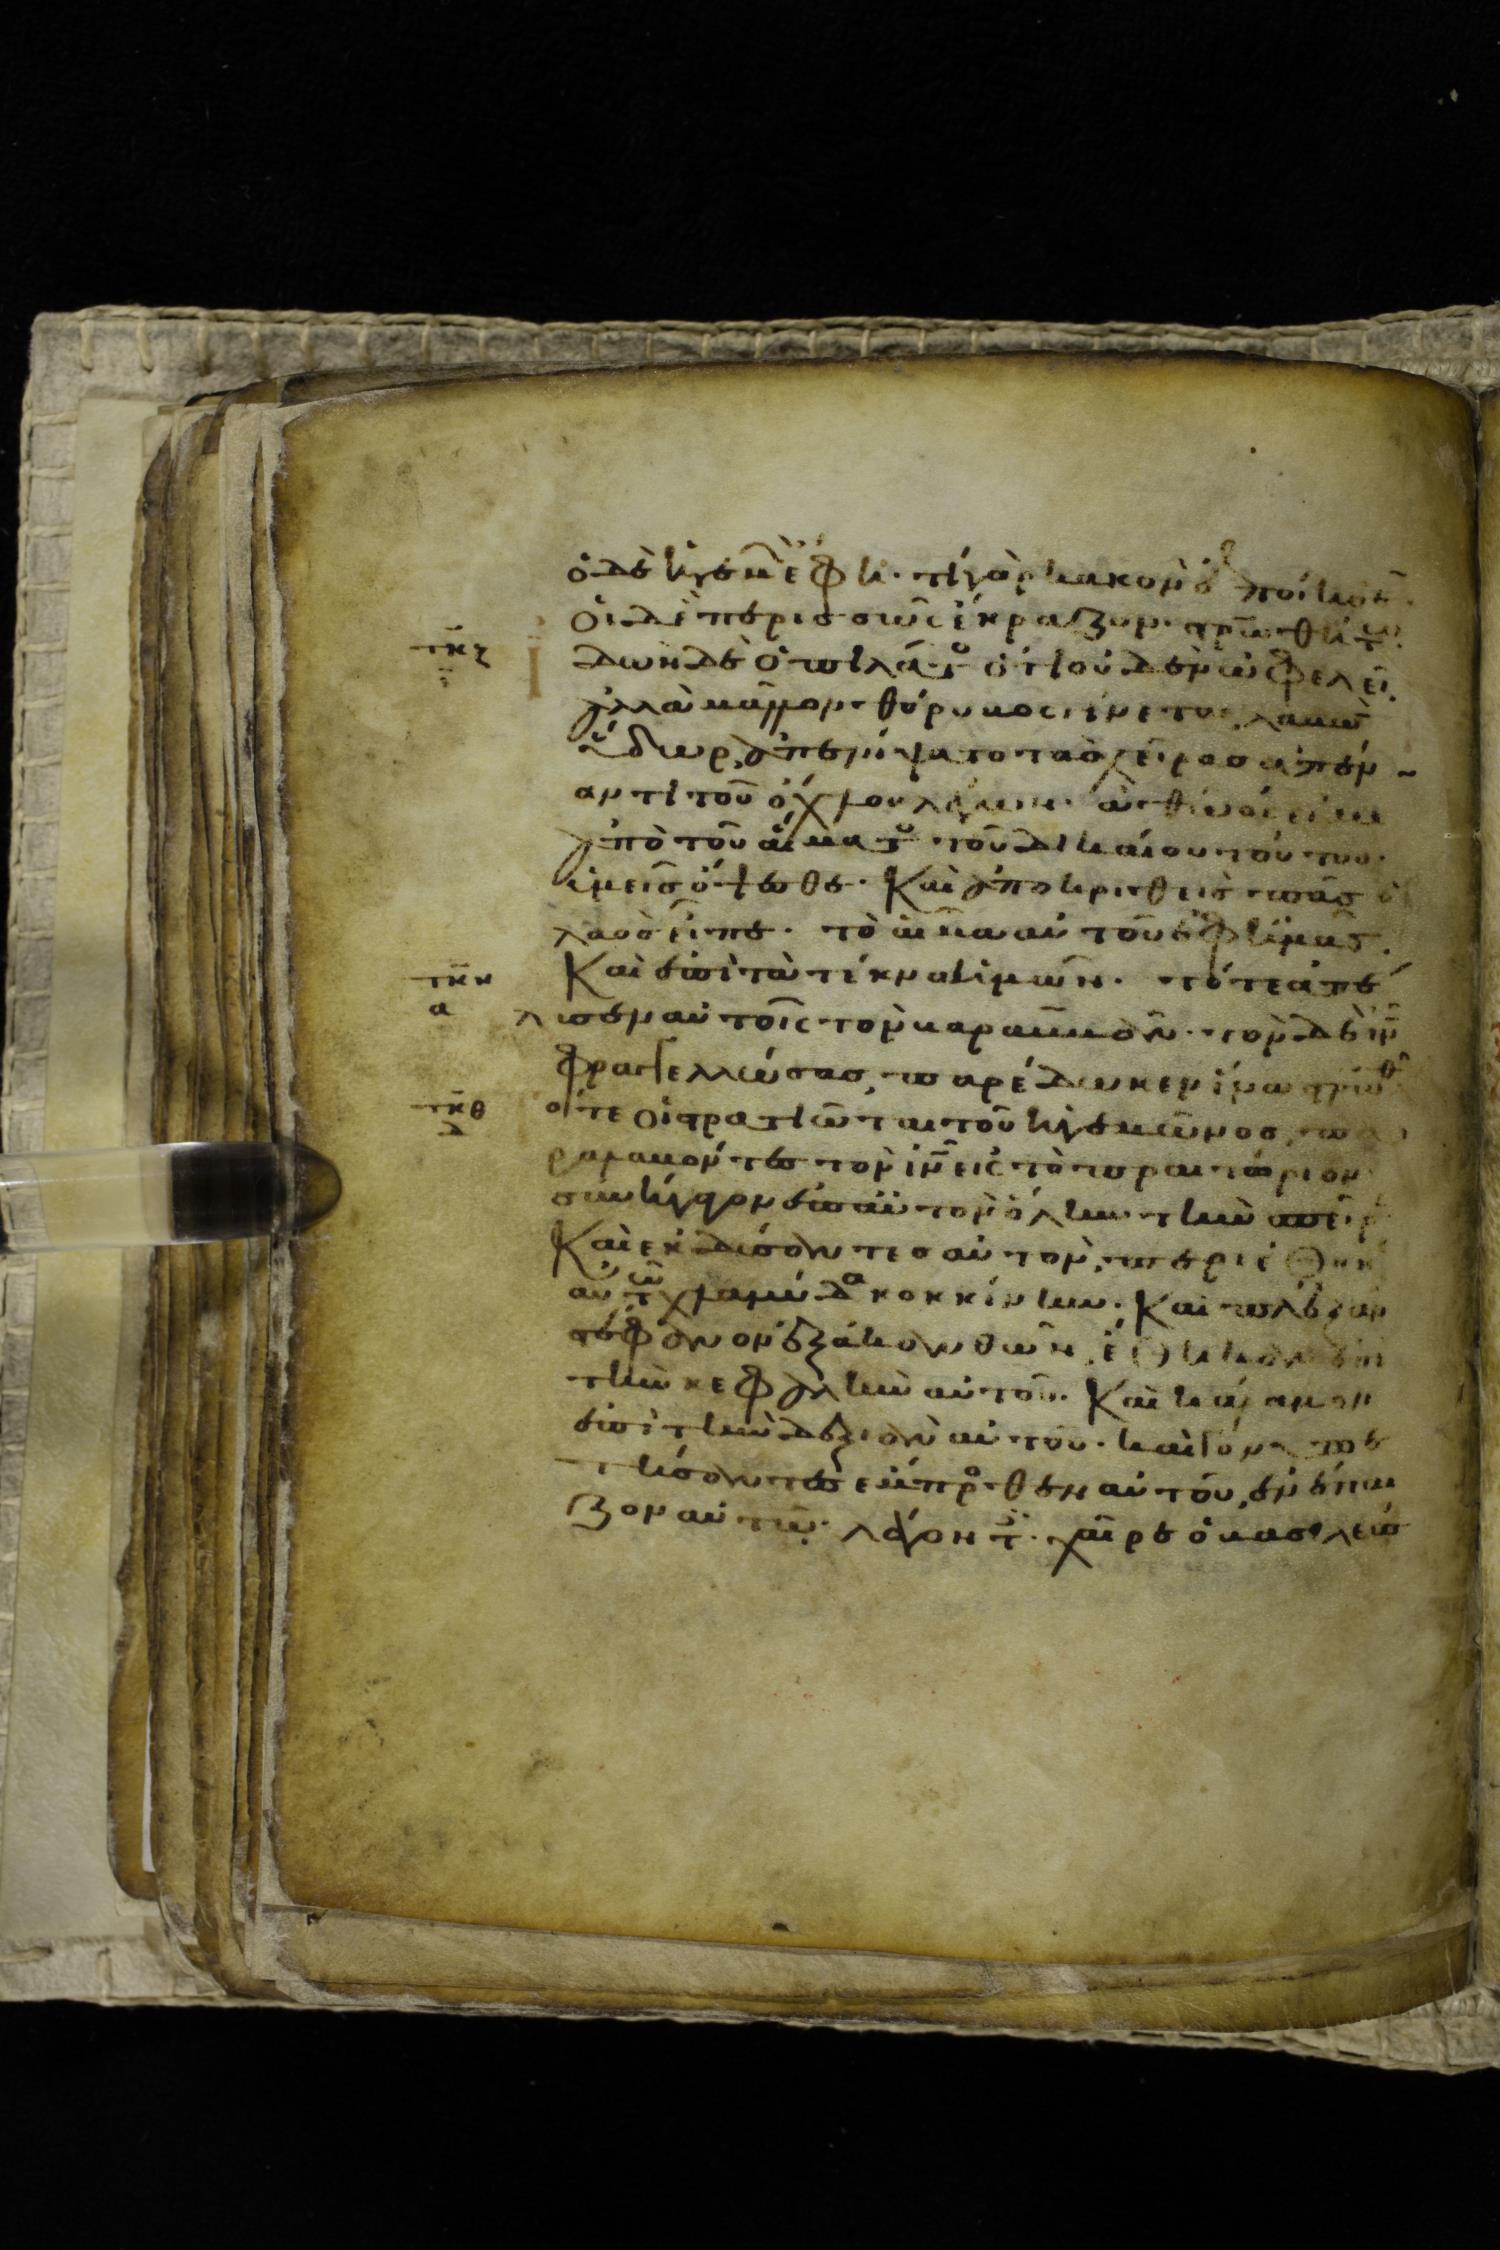 ὁ δὲ ἡγεμ̑ ἔφη· τί γὰρ κακὸν ἐποίησεν·
οἱ δὲ περισσῶς ἔκραζον· στρωθήτω·
τκζ ἰδὼν δὲ ὁ πιλάτος ὅτι οὐδὲν ὠφελεῖ,
ἀλλὰ μᾶλλον θόρυβος γίνεται, λαβὼν
ὕδωρ, ἀπενίψατο τὰς χεῖρας ἀπέν
αντι τοῦ ὄχλου λέγων· ἀθῶός εἰμι
ἀπὸ τοῦ αἵματος τοῦ δικαίου τούτου·
ὑμεῖς ὄψεσθε· Καὶ ἀποκριθεὶς πᾶς ὁ
λαὸς εἶπε· τὸ αἷμα αὐτοῦ ἐφ ἡμᾶς
Καὶ ἐπὶ τὰ τέκνα ἡμῶν· τότε ἀπέ
τκη α λυσεν αὐτοῖς τὸν βαραββᾶν· τὸν δὲ ιν̄
φραγελλώσας, παρέδωκεν ἵνα στρωθῇ
τκθ δ τότε οἱ στρατιῶται τοῦ ἡγεμῶνος, πα
ραλαβόντες τὸν ιν̄ εἰς τὸ πραιτώριον
συνήγαγον ἐπ αὐτὸν ὅλην τὴν σπεῖρ
Καὶ ἐκδύσαντες αὐτὸν, περιέθηκ
αὐτῶ χλαμύδα κοκκίνην· Καὶ πλέξαν
στέφανον ἐξ ἀκανθῶν, ἔθηκαν ἐπι
τὴν κεφαλὴν αὐτοῦ· Καὶ κάλαμον
ἐπὶ τὴν δεξιὰν αὐτοῦ· καὶ γονυπε
τήσαντες ἔμπροσθεν αὐτοῦ, ἐνέπαι
ζον αὐτῶ· λέγοντ̑· χαῖρε ὁ βασιλεὺς